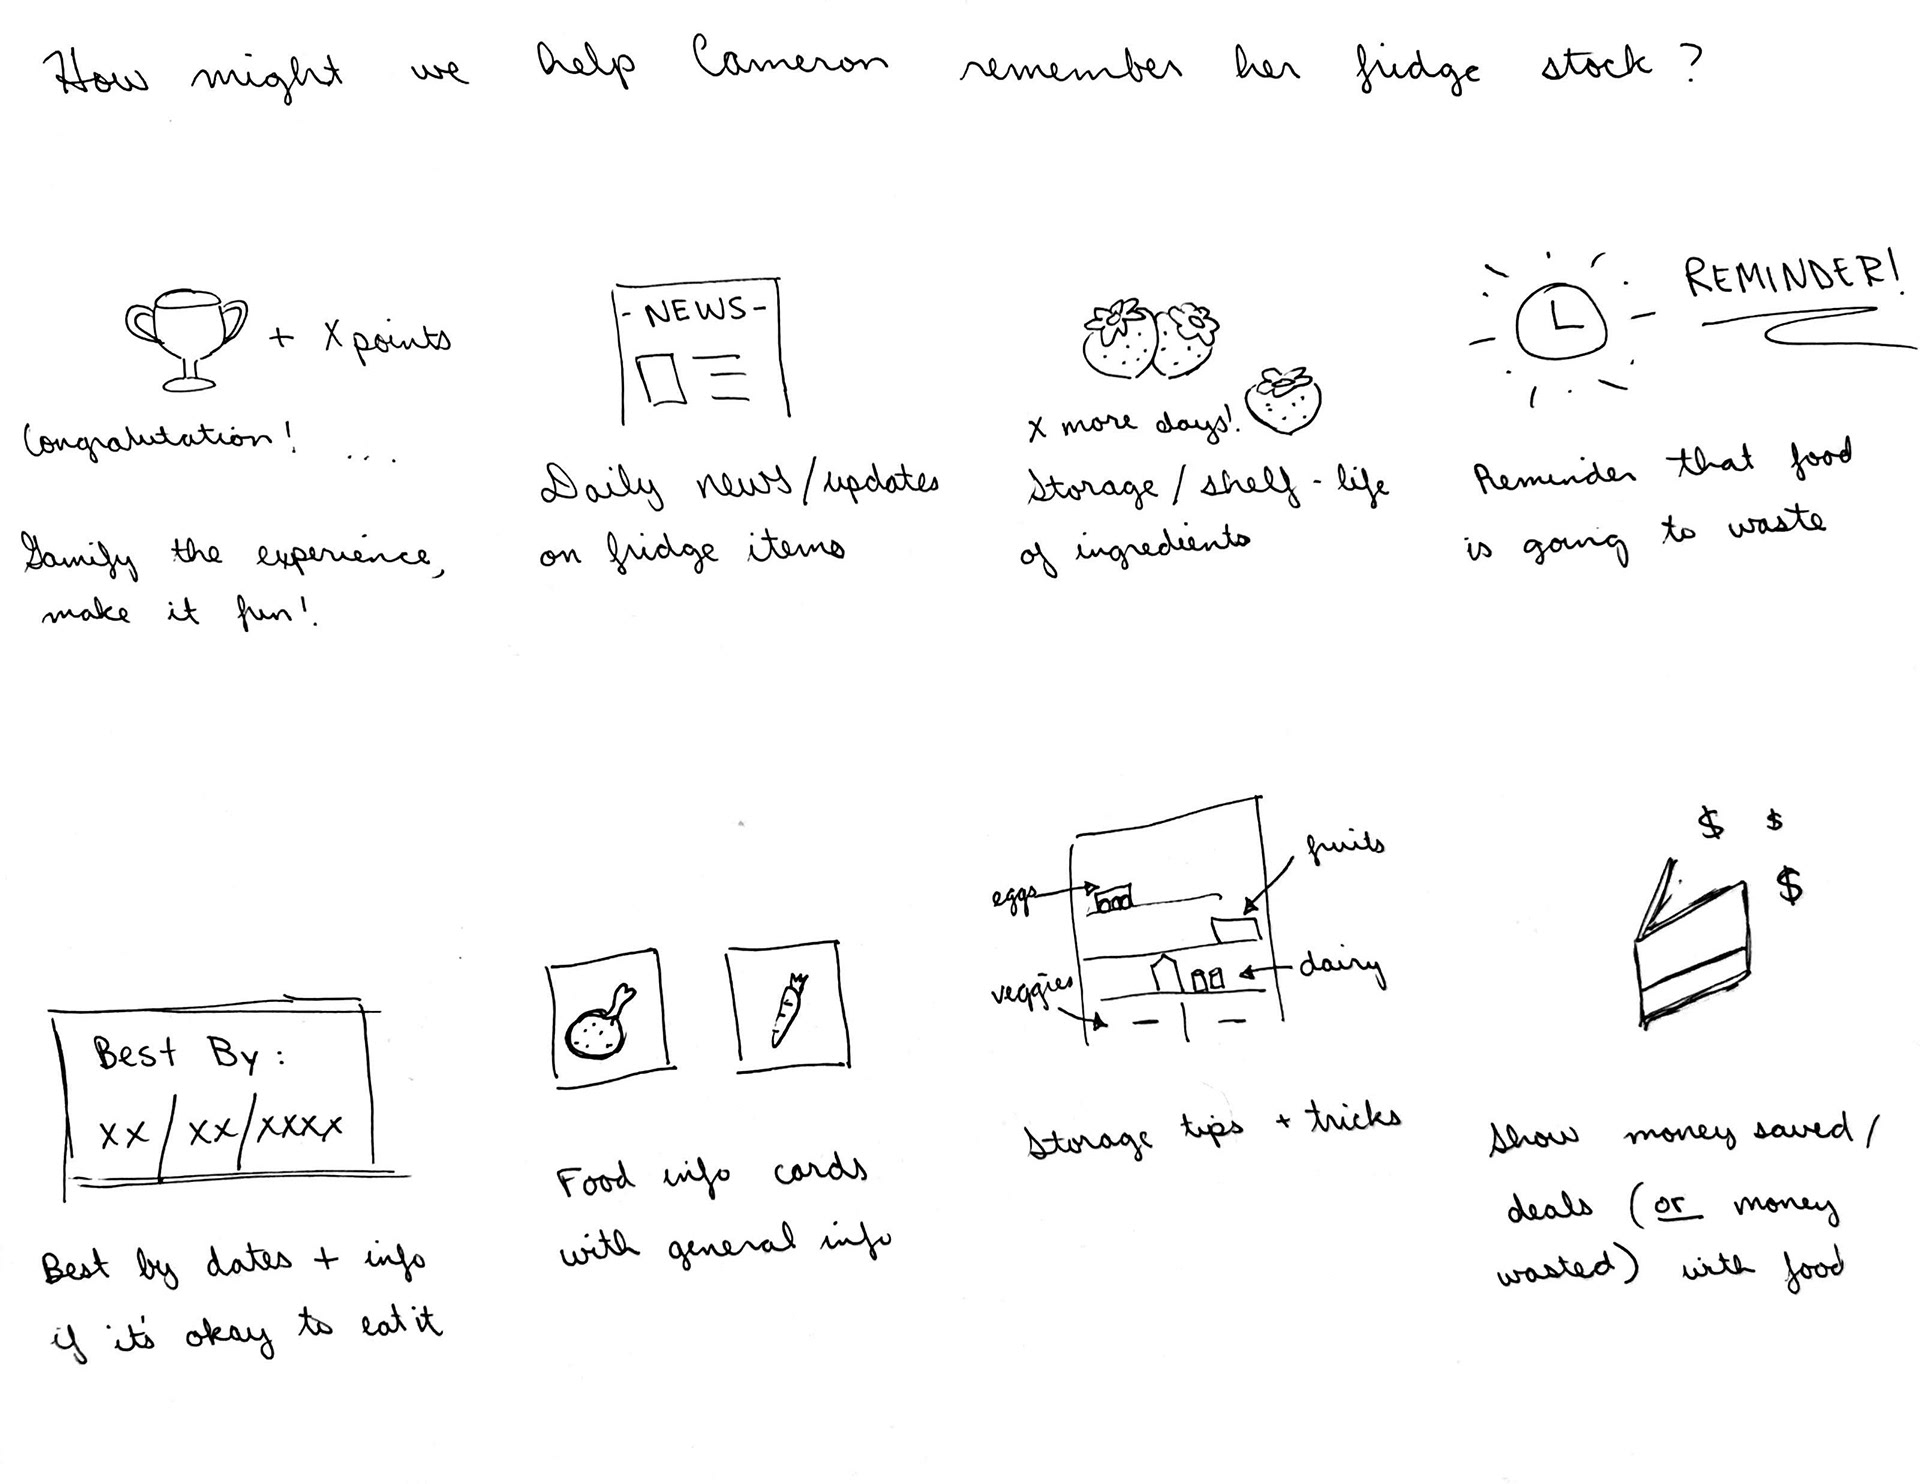 How might we help Cameron remember her fridge stock?
+ X points
Congralutation! ...
Gamify the experience,
make it fun!
- NEWS -
Daily news/updates
on fridge items
X more days!
Storage / shelf-life
of ingredients
REMINDER!
Reminder that food
is going to waste
Best By:
XX/XX/XXXX
Best by dates + info
if it's okay to eat it
Food info cards
with general info
eggs
fruits
veggies
dairy
Storage tips + tricks
$ $
$
Show money saved/
deals (or money
wasted) with food